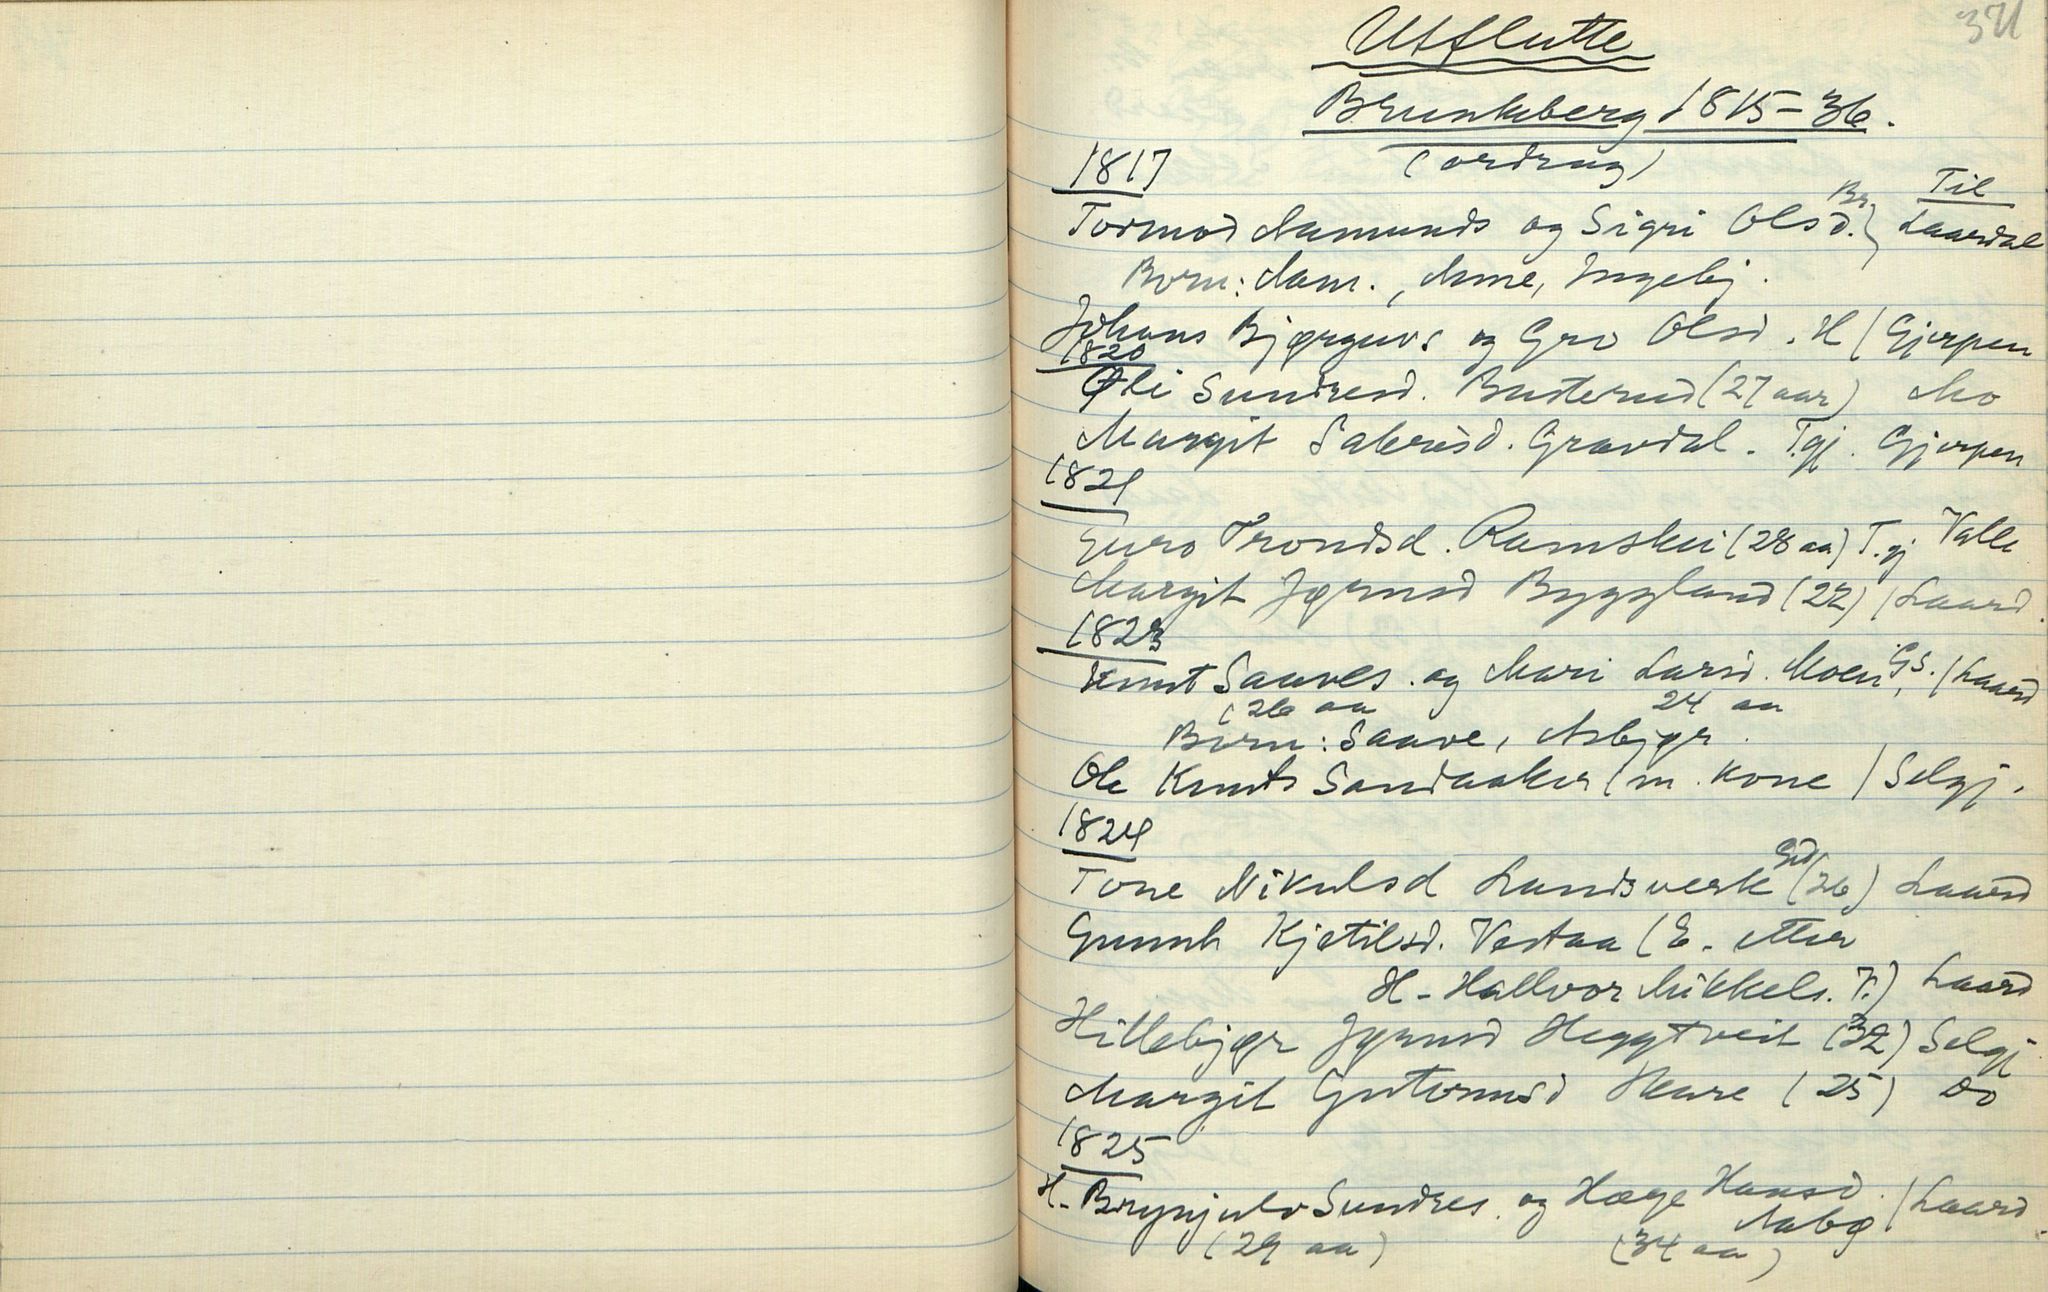 371
Utflutte
Brunkeberg 1815-36.
(ordrag)
1817
Til
Tormod Aamunds og Sigri Olsd. Br. } Laardal
Born: Aam., Anne, Ingebj.
Johans Bjørguvs og Gro Olsd. H / Gjerpen
1820
Øli Sundresd. Busterud (27 aar) Mo
Margit Saleresd. Gravdal. T.gj. Gjerpen
1821
Guro Trondsd. Ramskei (28 aa) T.gj Valle
Margit Jørunsd Byggland (22) / Laard.
1823
Knut Saaves. og Mari Larsd. Moen G.S. / Laard
(26 aa 24 aa
Born: Saave, Asbjør.
Ole Knuts Sandaaker (m. kone / Selgj.
1824
Tone Nikulsd Lundsverk Gd (26) Laard
Gunnh Kjetilsd. Vestaa (E. etter
H- Hallvor Mikkels. V.) Laard
Hillebjør Jørunsd Heggtveit (32) Selgj.
Margit Guttormsd Hare (25) Do
1825
H- Brynjulv Sundres. og Hæge Hansd. / Laard.
Aabø
(29 aa) (34 aa)